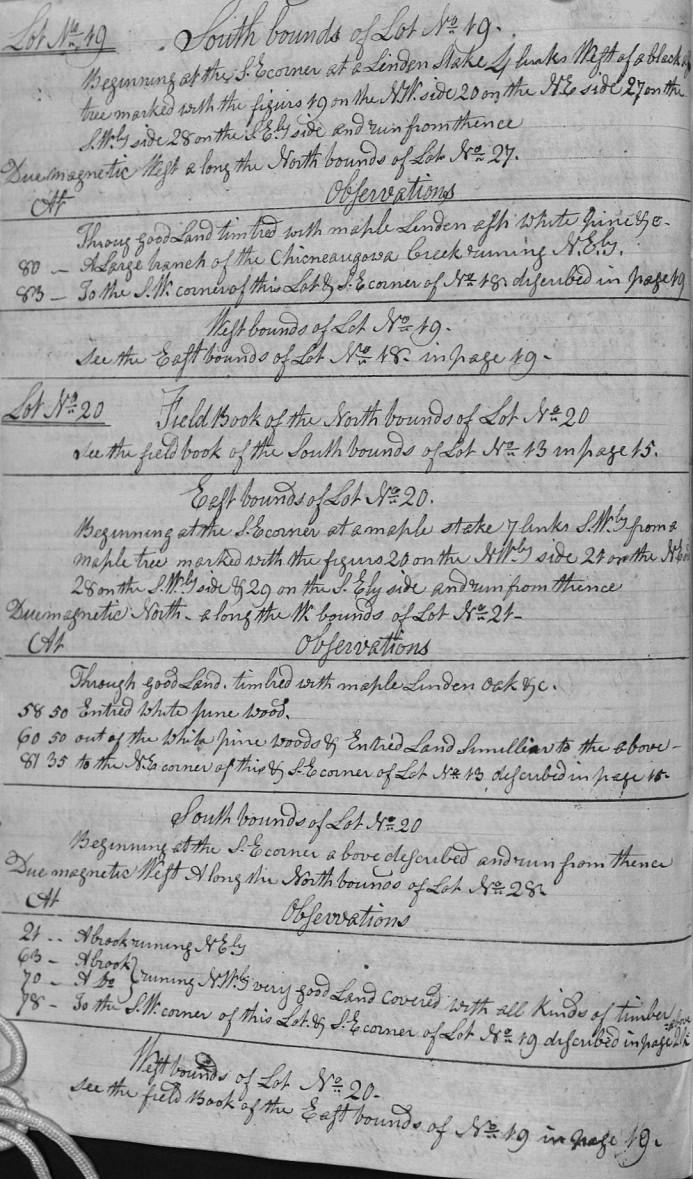 Lot No 19 South bounds of Lot No 19.
Beginning at the S.E corner at a Linden Stake 4 links West of a black
tree marked with the figurs 19 on the N.W. side 20 on the N.E side 27 on the
S.Wly side 28 on the S.Ely side and run from thence
Due magnetic West a long the North bounds of Lot No 27.
At Observations
Throug good Land timbred with maple Linden ash White pine &c-
80 — A Large branch of the Chicneaugowa Creek runing N.Ely.
83 — To the S.W. corner of this Lot & S.E corner of No 18 described in page 19
West bounds of Lot No 19.
see the East bounds of Lot No 18 in page 19-
Lot No 20 Field Book of the North bounds of Lot No 20
see the field book of the South bounds of Lot No 13 in page 15.
East bounds of Lot No 20.
Beginning at the S.E corner at a maple stake 7 links S.Wly from a
maple tree marked with the figurs 20 on the N.Wly side 21 on the N.E
28 on the S.Wly side & 29 on the S.Ely side and run from thence
Due magnetic North - a long the W. bounds of Lot No 21-
At Observations
Through good Land. timbred with maple Linden Oak &c.
58 50 Entred White pine wood.
60 50 out of the White pine woods & Entred Land Simillier to the above-
81 35 to the N.E corner of this & S.E corner of Lot No 13 described in page 15-
South bounds of Lot No 20
Beginning at the S.E corner above described and run from thence
Due magnetic West Along the North bounds of Lot No 28.
At Observations
21 -- A brook runing N.Ely
63 - A brook
70 - A Do } runing N.Wly very good Land covered with all Kinds of timber
78 - To the S.W. corner of this Lot & S.E corner of Lot No 19 described in page above
West bounds of Lot No 20-
see the field Book of the East bounds of No 19 in page 19.